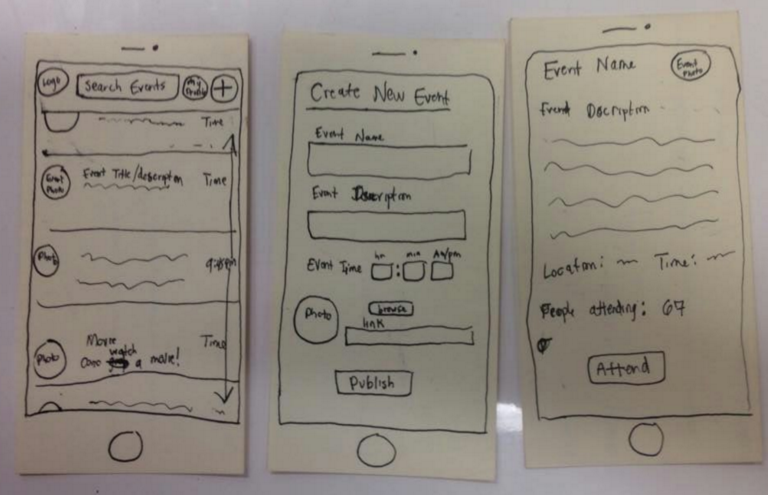 Logo
Search Events
my
Profile
+
Time
Event
Photo
Event Title/description
Time
Photo
Photo
Movie
Come watch a movie!
Time
Create New Event
Event Name
Event Description
Event Time
hr
min
AM/pm
:
Photo
browse
link
Publish
Event Name
Event
Photo
Event Description
Location:
Time:
People attending: 67
Attend